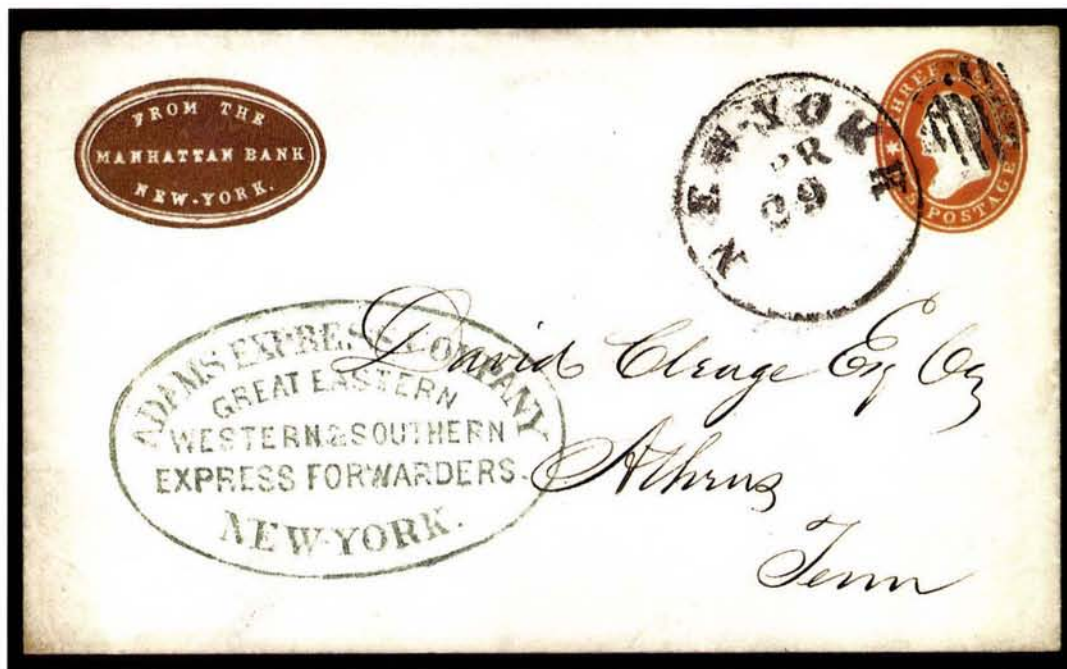 FROM THE
MANHATTAN BANK
NEW-YORK.
NEW-YORK
PR
29
THREE
POSTAGE
ADAMS EXPRESS COMPANY
GREAT EASTERN
WESTERN & SOUTHERN
EXPRESS FORWARDERS.
NEW-YORK.
David Cleage Esq
Athens
Tenn